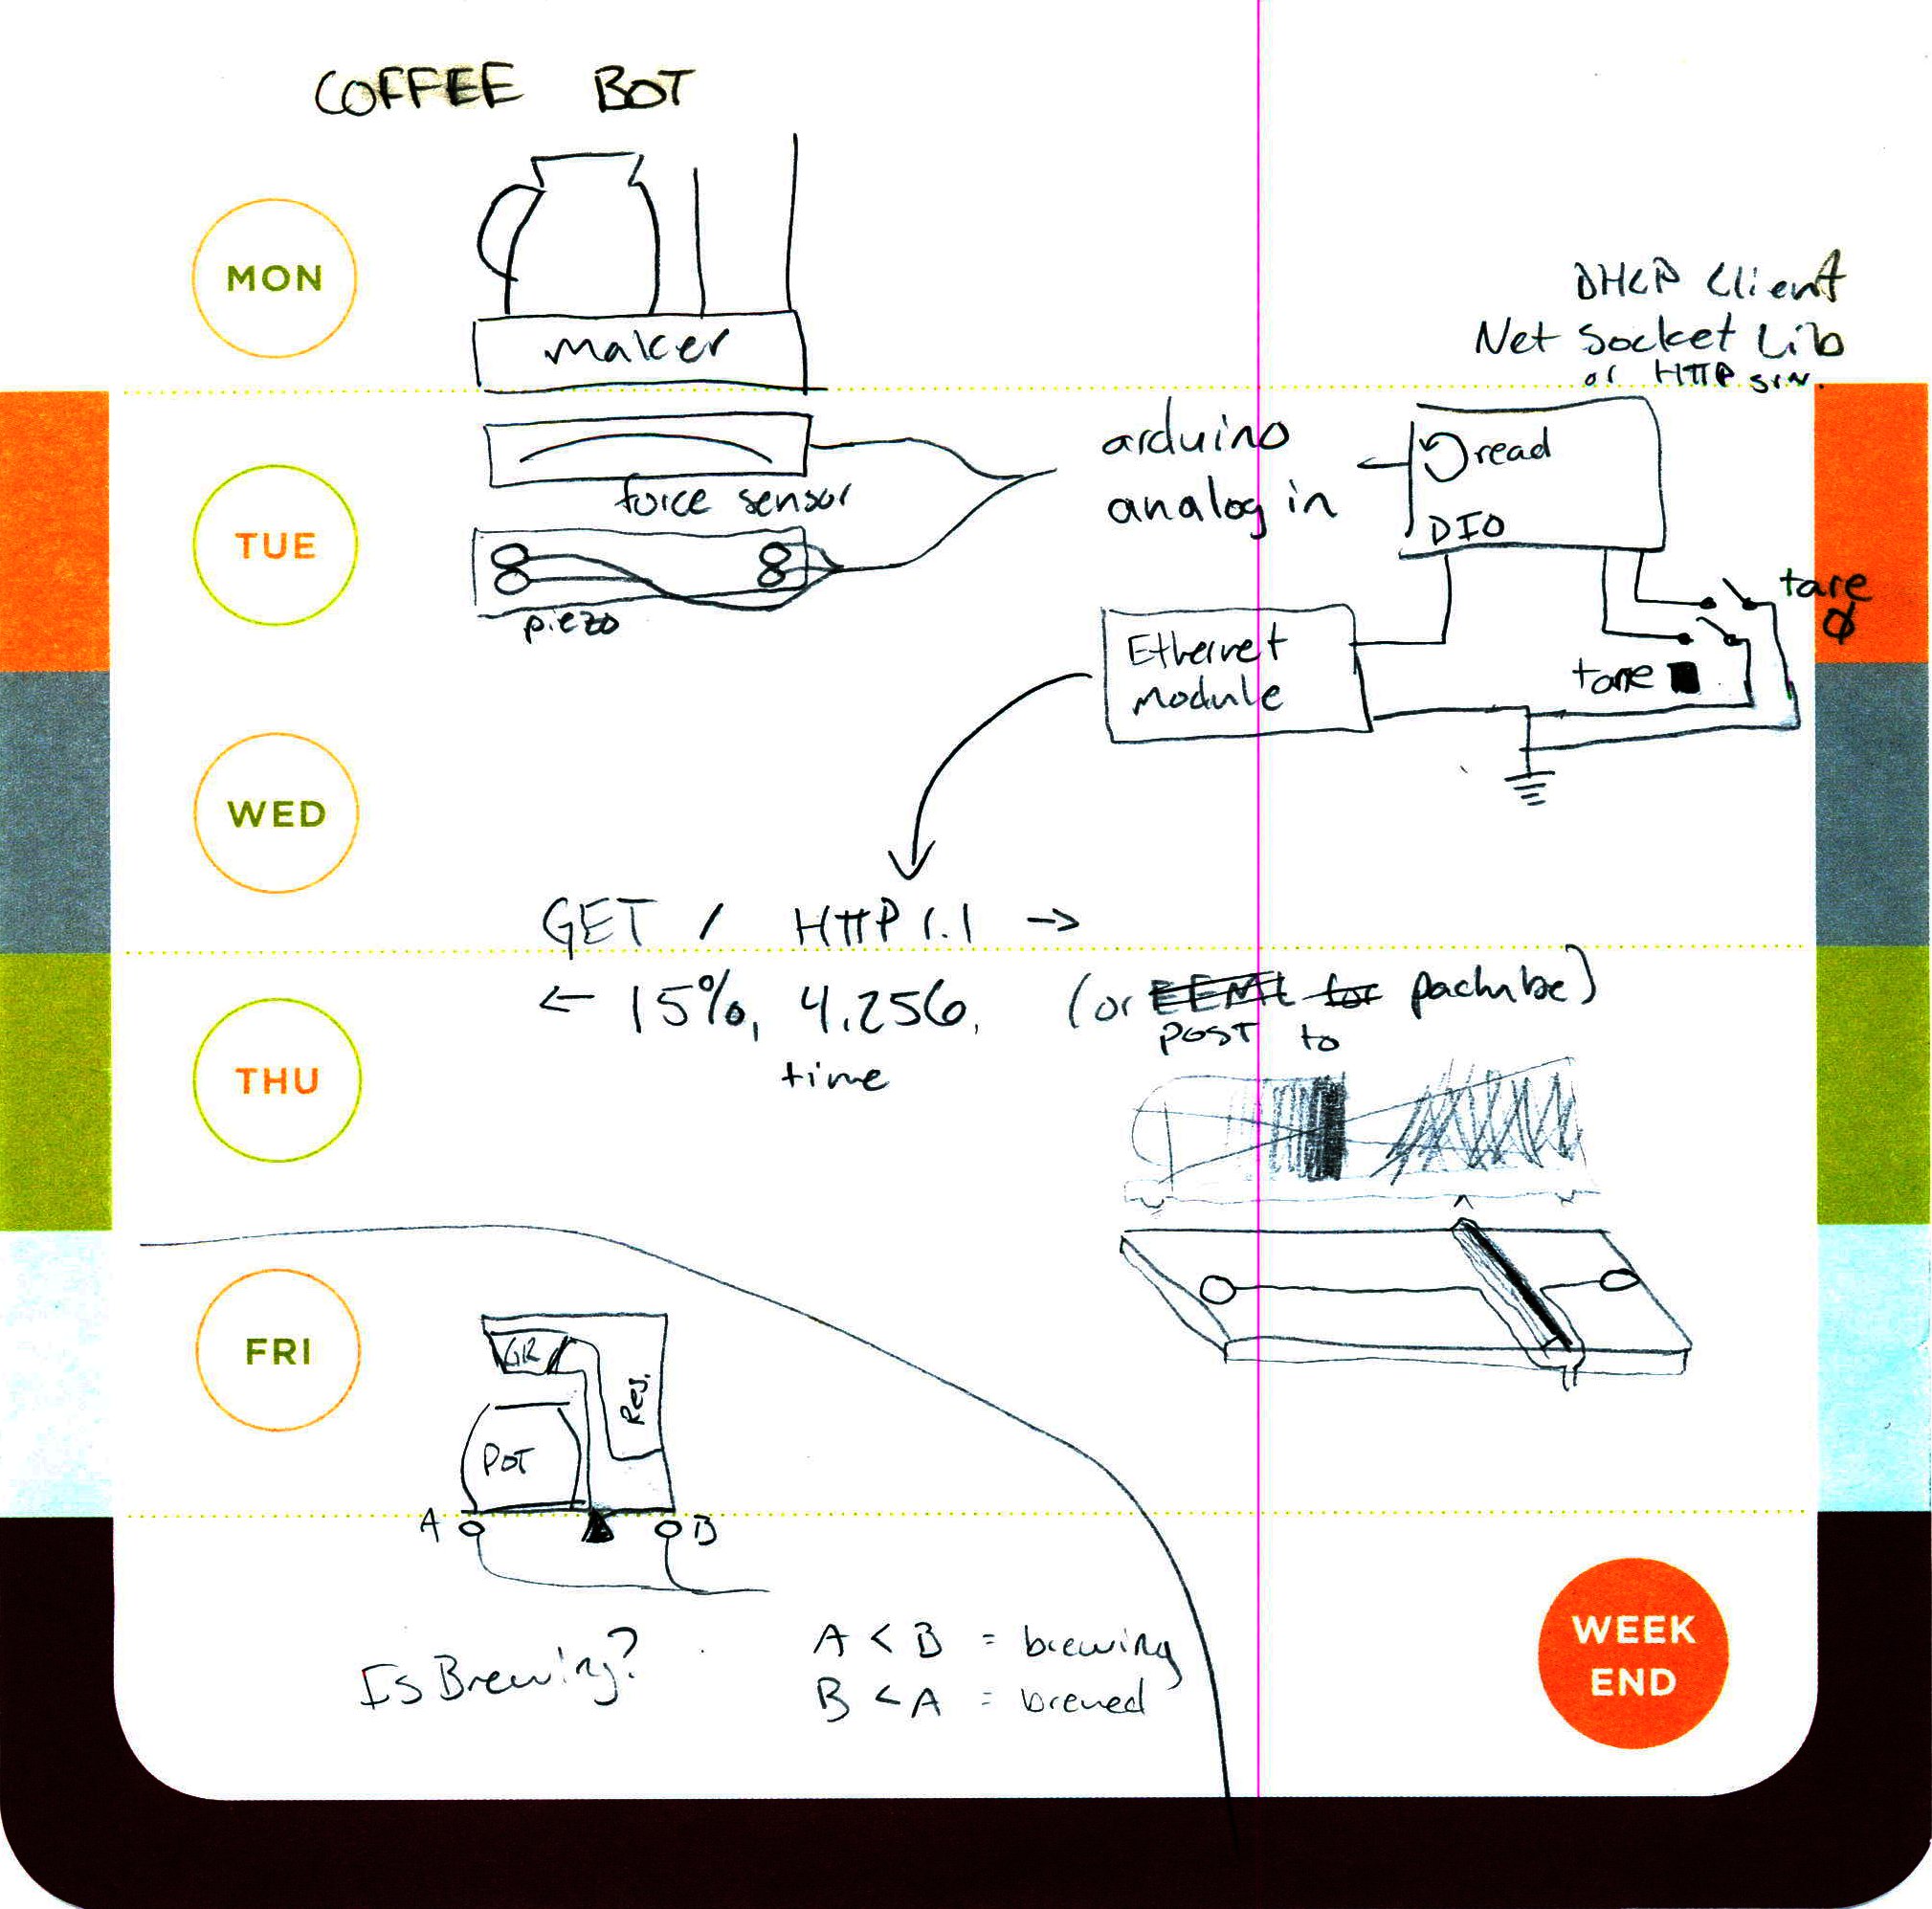 COFFEE BOT
MON
maker
DHCP Client
Net Socket Lib
or HTTP srv.
TUE
force sensor
piezo
arduino
analog in
read
DIO
tare
Ø
tare
Ethernet
Module
WED
GET / HTTP 1.1 →
← 15%, 4.256, (or EEML for pachube)
time
POST to
THU
FRI
GR
Res.
POT
A B
IsBrewing?
A < B = brewing
B < A = brewed
WEEK
END